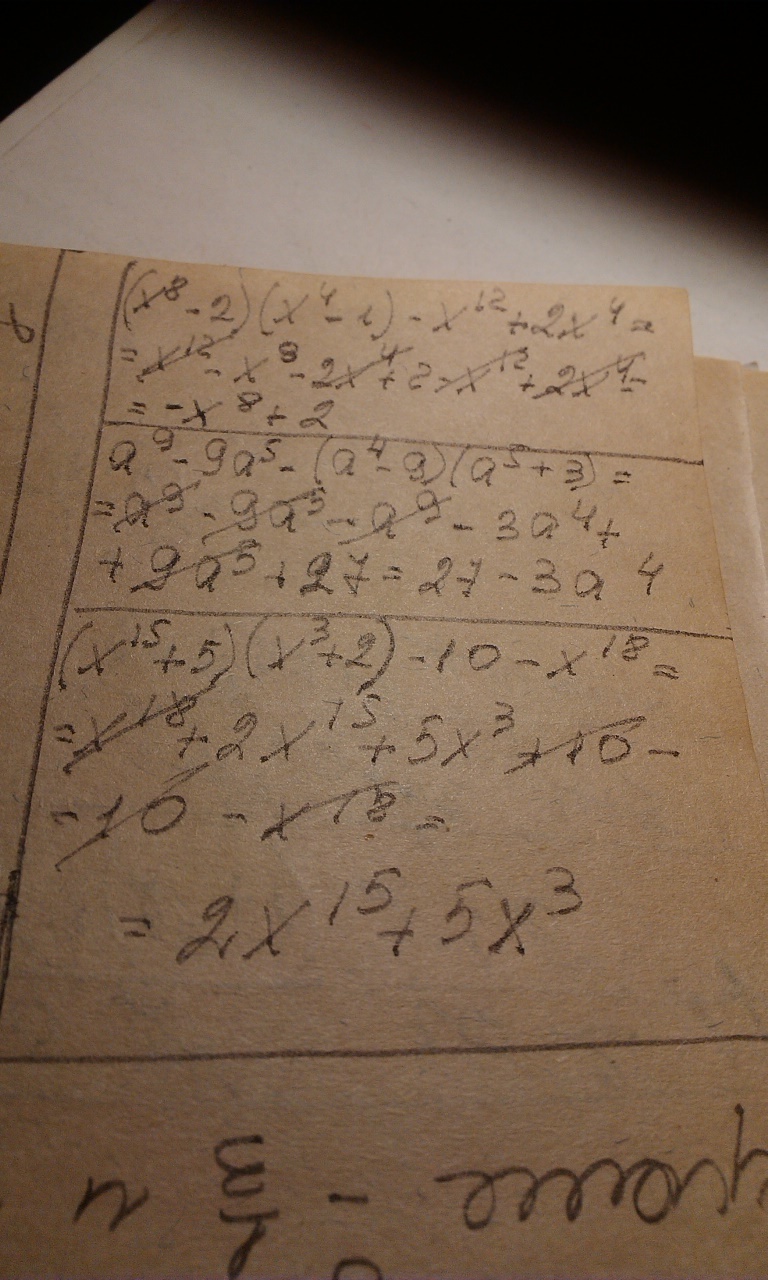 (x⁸ - 2)(x⁴ - 1) - x¹² + 2x⁴ =
= x¹² - x⁸ - 2x⁴ + 2 - x¹² + 2x⁴ =
= -x⁸ + 2
a⁹ - 9a⁵ - (a⁴ - 9)(a⁵ + 3) =
= a⁹ - 9a⁵ - a⁹ - 3a⁴ +
+ 9a⁵ + 27 = 27 - 3a⁴
(x¹⁵ + 5)(x³ + 2) - 10 - x¹⁸ =
= x¹⁸ + 2x¹⁵ + 5x³ + 10 -
- 10 - x¹⁸ =
= 2x¹⁵ + 5x³